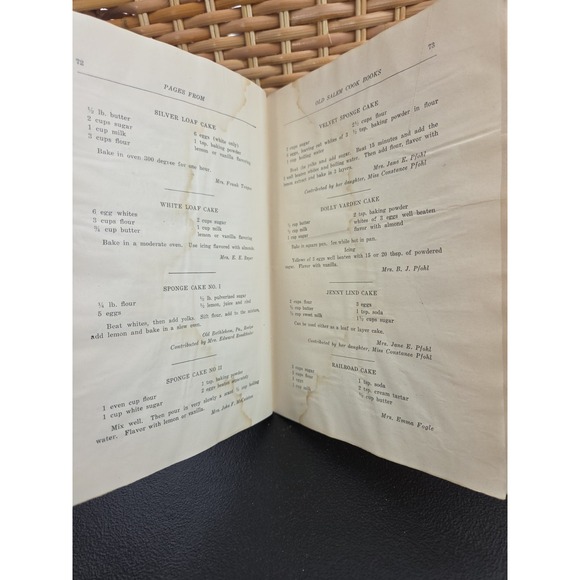 72
PAGES FROM
SILVER LOAF CAKE
½ lb. butter
2 cups sugar
1 cup milk
3 cups flour
6 eggs (white only)
1 tsp. baking powder
lemon or vanilla flavoring
Bake in oven 300 degree for one hour.
Mrs. Frank
WHITE LOAF CAKE
6 egg whites
3 cups flour
¾ cup butter
2 cups sugar
1 cup milk
lemon or vanilla flavoring
Bake in a moderate oven. Use icing flavored with almond.
Mrs. E. E.
SPONGE CAKE NO. I
¼ lb. flour
5 eggs
½ lb. pulverized sugar
½ lemon, juice and rind
Beat whites, then add yolks. Sift flour, add to the mixture,
add lemon and bake in a slow oven.
Old Bethlehem, Pa.,
Contributed by Mrs. Edward
SPONGE CAKE NO II
1 even cup flour
1 cup white sugar
1 tsp. baking powder
3 eggs beaten separately
Mix well. Then pour in very slowly a small ½ cup boiling
water. Flavor with lemon or vanilla.
Mrs. John F.
OLD SALEM COOK BOOKS
73
VELVET SPONGE CAKE
2 cups sugar
6 eggs, leaving out whites of 3
1 cup boiling water
2½ cups flour
1 tsp. baking powder in flour
Beat the yolks and sugar. Beat 15 minutes and add the
whites and boiling water. Then add flour, flavor with
lemon extract and bake in 3 layers.
Mrs. Jane E. Pfohl
Contributed by her daughter, Miss Constance Pfohl
DOLLY VARDEN CAKE
½ cup butter
½ cup milk
1 cup sugar
2 tsp. baking powder
whites of 3 eggs well beaten
flavor with almond
Bake in square pan. Ice while hot in pan.
Icing
Yolkes of 3 eggs well beaten with 15 or 20 tbsp. of powdered
sugar. Flavor with vanilla.
Mrs. B. J. Pfohl
JENNY LIND CAKE
3 cups flour
½ cup butter
½ cup sweet milk
3 eggs
1 tsp. soda
1½ cups sugar
Can be used either as a loaf or layer cake.
Mrs. Jane E. Pfohl
Contributed by her daughter, Miss Constance Pfohl
RAILROAD CAKE
2 cups sugar
3 cups flour
eggs
1 cup milk
1 tsp. soda
2 tsp. cream tartar
¾ cup butter
Mrs. Emma Fogle